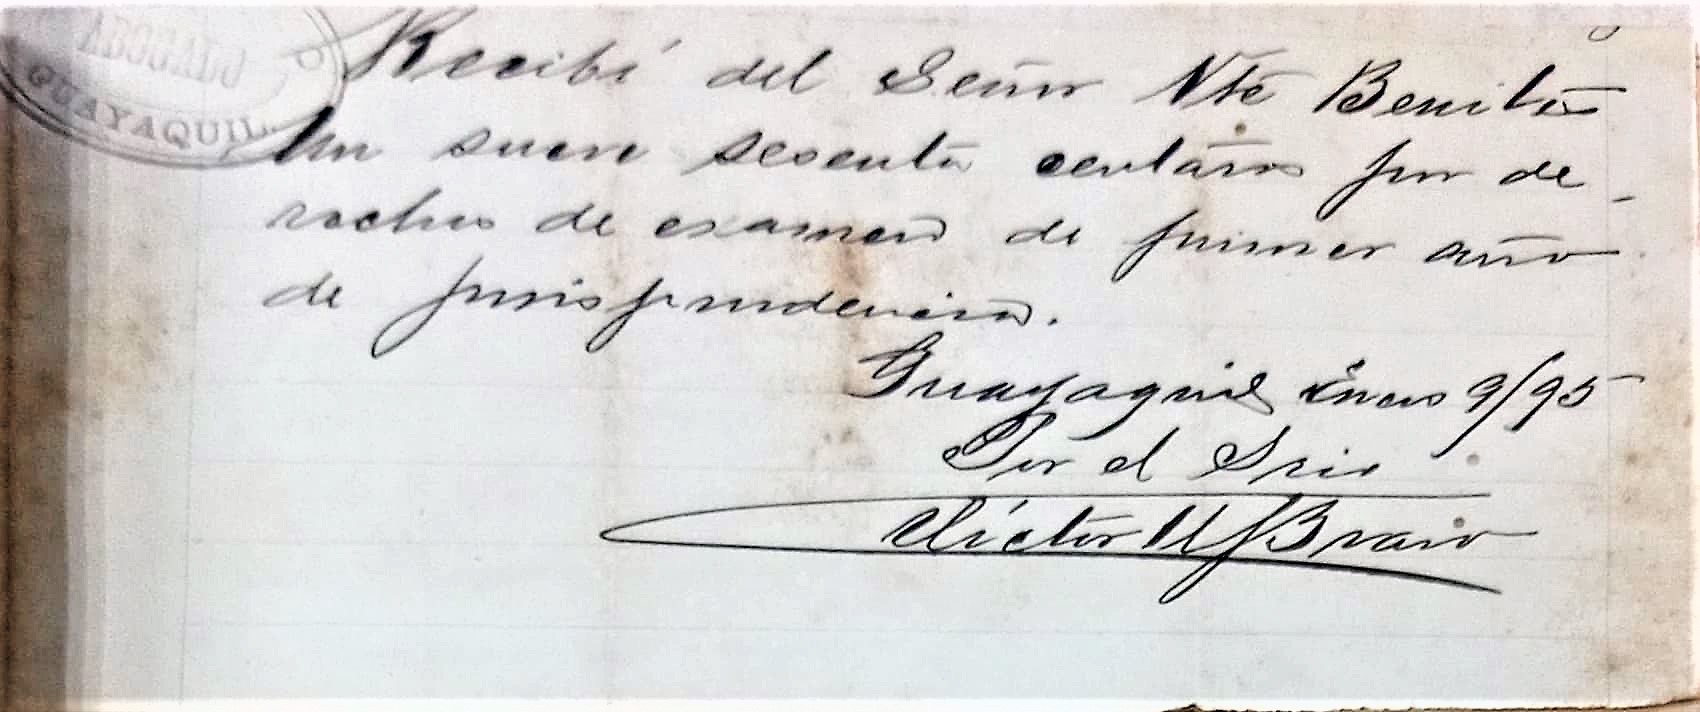 ABOGADO
GUAYAQUIL
Recibí del Señor Nte Benites
Un sucre sesenta centavos por de-
rechos de examen de primer año
de jurisprudencia.
Guayaquil Enero 9/95
Por el Srio
Víctor M Bravo